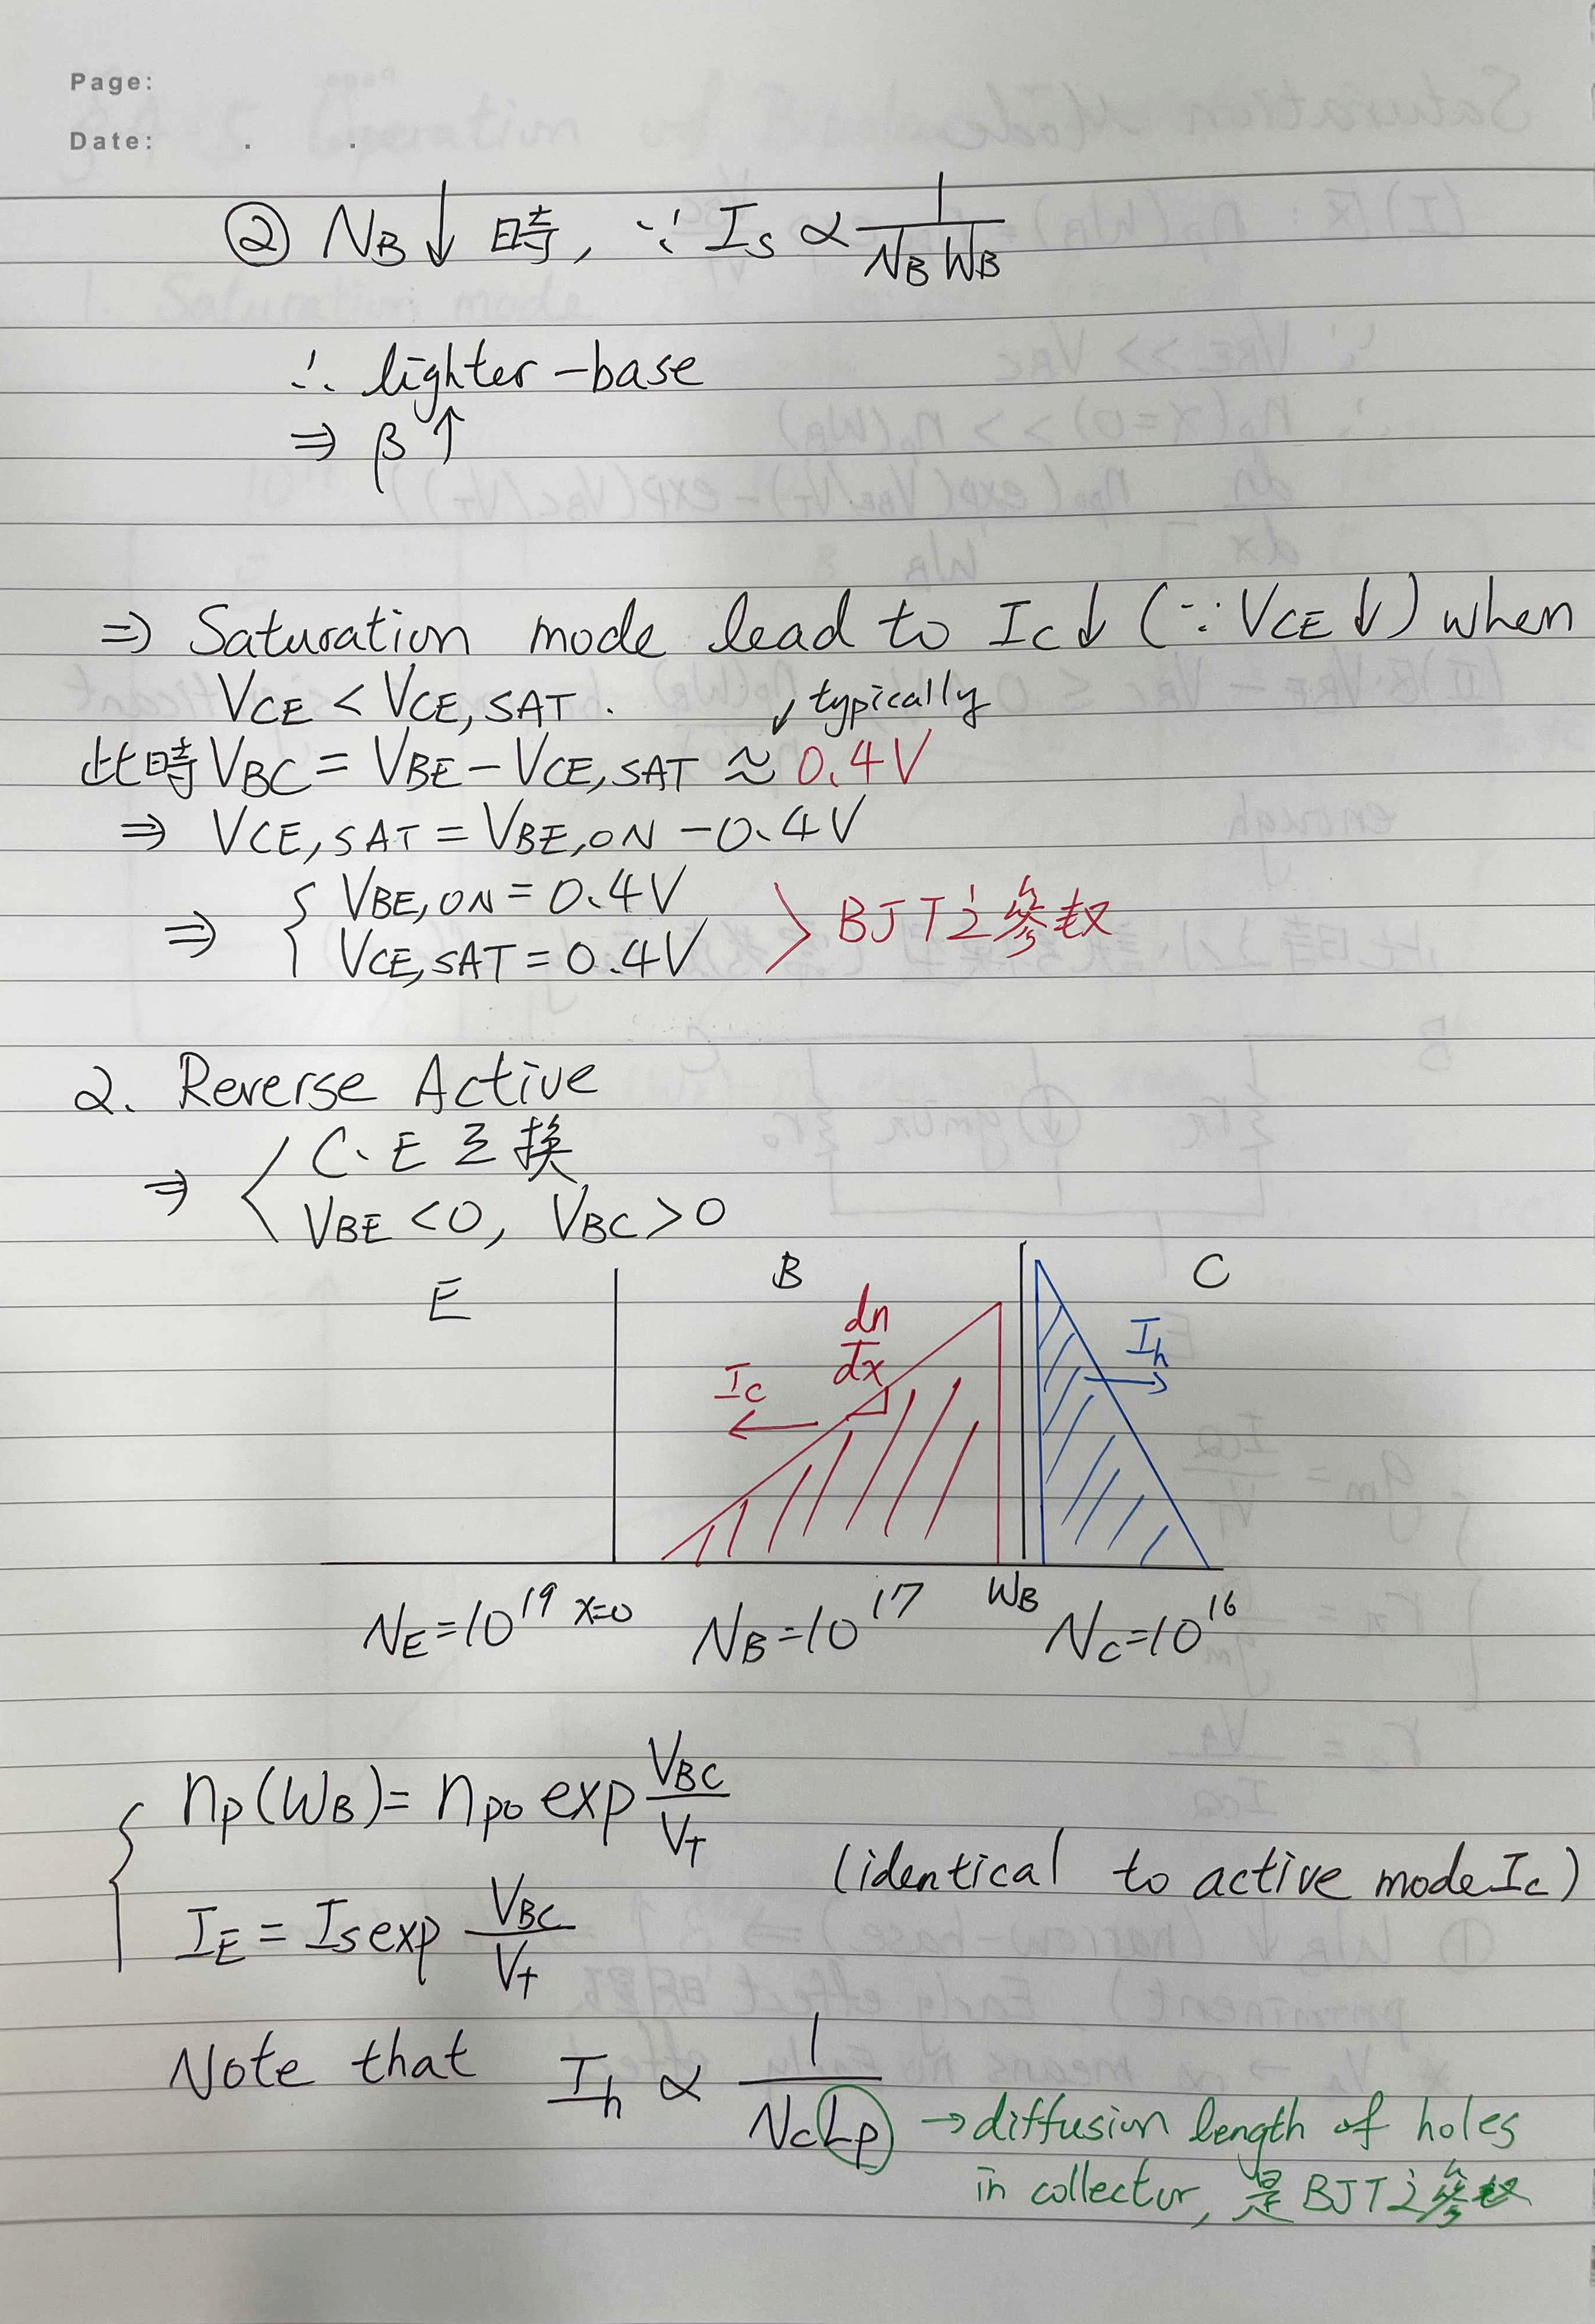 Page:
Date: . .
② N_B↓ 時, ∵ I_S ∝ 1/(N_B W_B)
∴ lighter-base
⇒ β↑
⇒ Saturation mode lead to I_C↓ (∵ V_CE↓) when
V_CE < V_CE,SAT. ↙ typically
此時 V_BC = V_BE - V_CE,SAT ≈ 0.4V
⇒ V_CE,SAT = V_BE,ON - 0.4V
⇒ { V_BE,ON = 0.4V
V_CE,SAT = 0.4V 〉 BJT之參数
2. Reverse Active
⇒ 〈 C、E 互換
V_BE < 0, V_BC > 0
E B C
dn/dx
I_C I_h
N_E=10^19 x=0 N_B=10^17 W_B N_C=10^16
{ n_p(W_B) = n_p0 exp V_BC/V_T
(identical to active mode I_C)
I_E = I_S exp V_BC/V_T
Note that I_h ∝ 1/(N_C L_p) → diffusion length of holes
in collector, 是BJT之參数